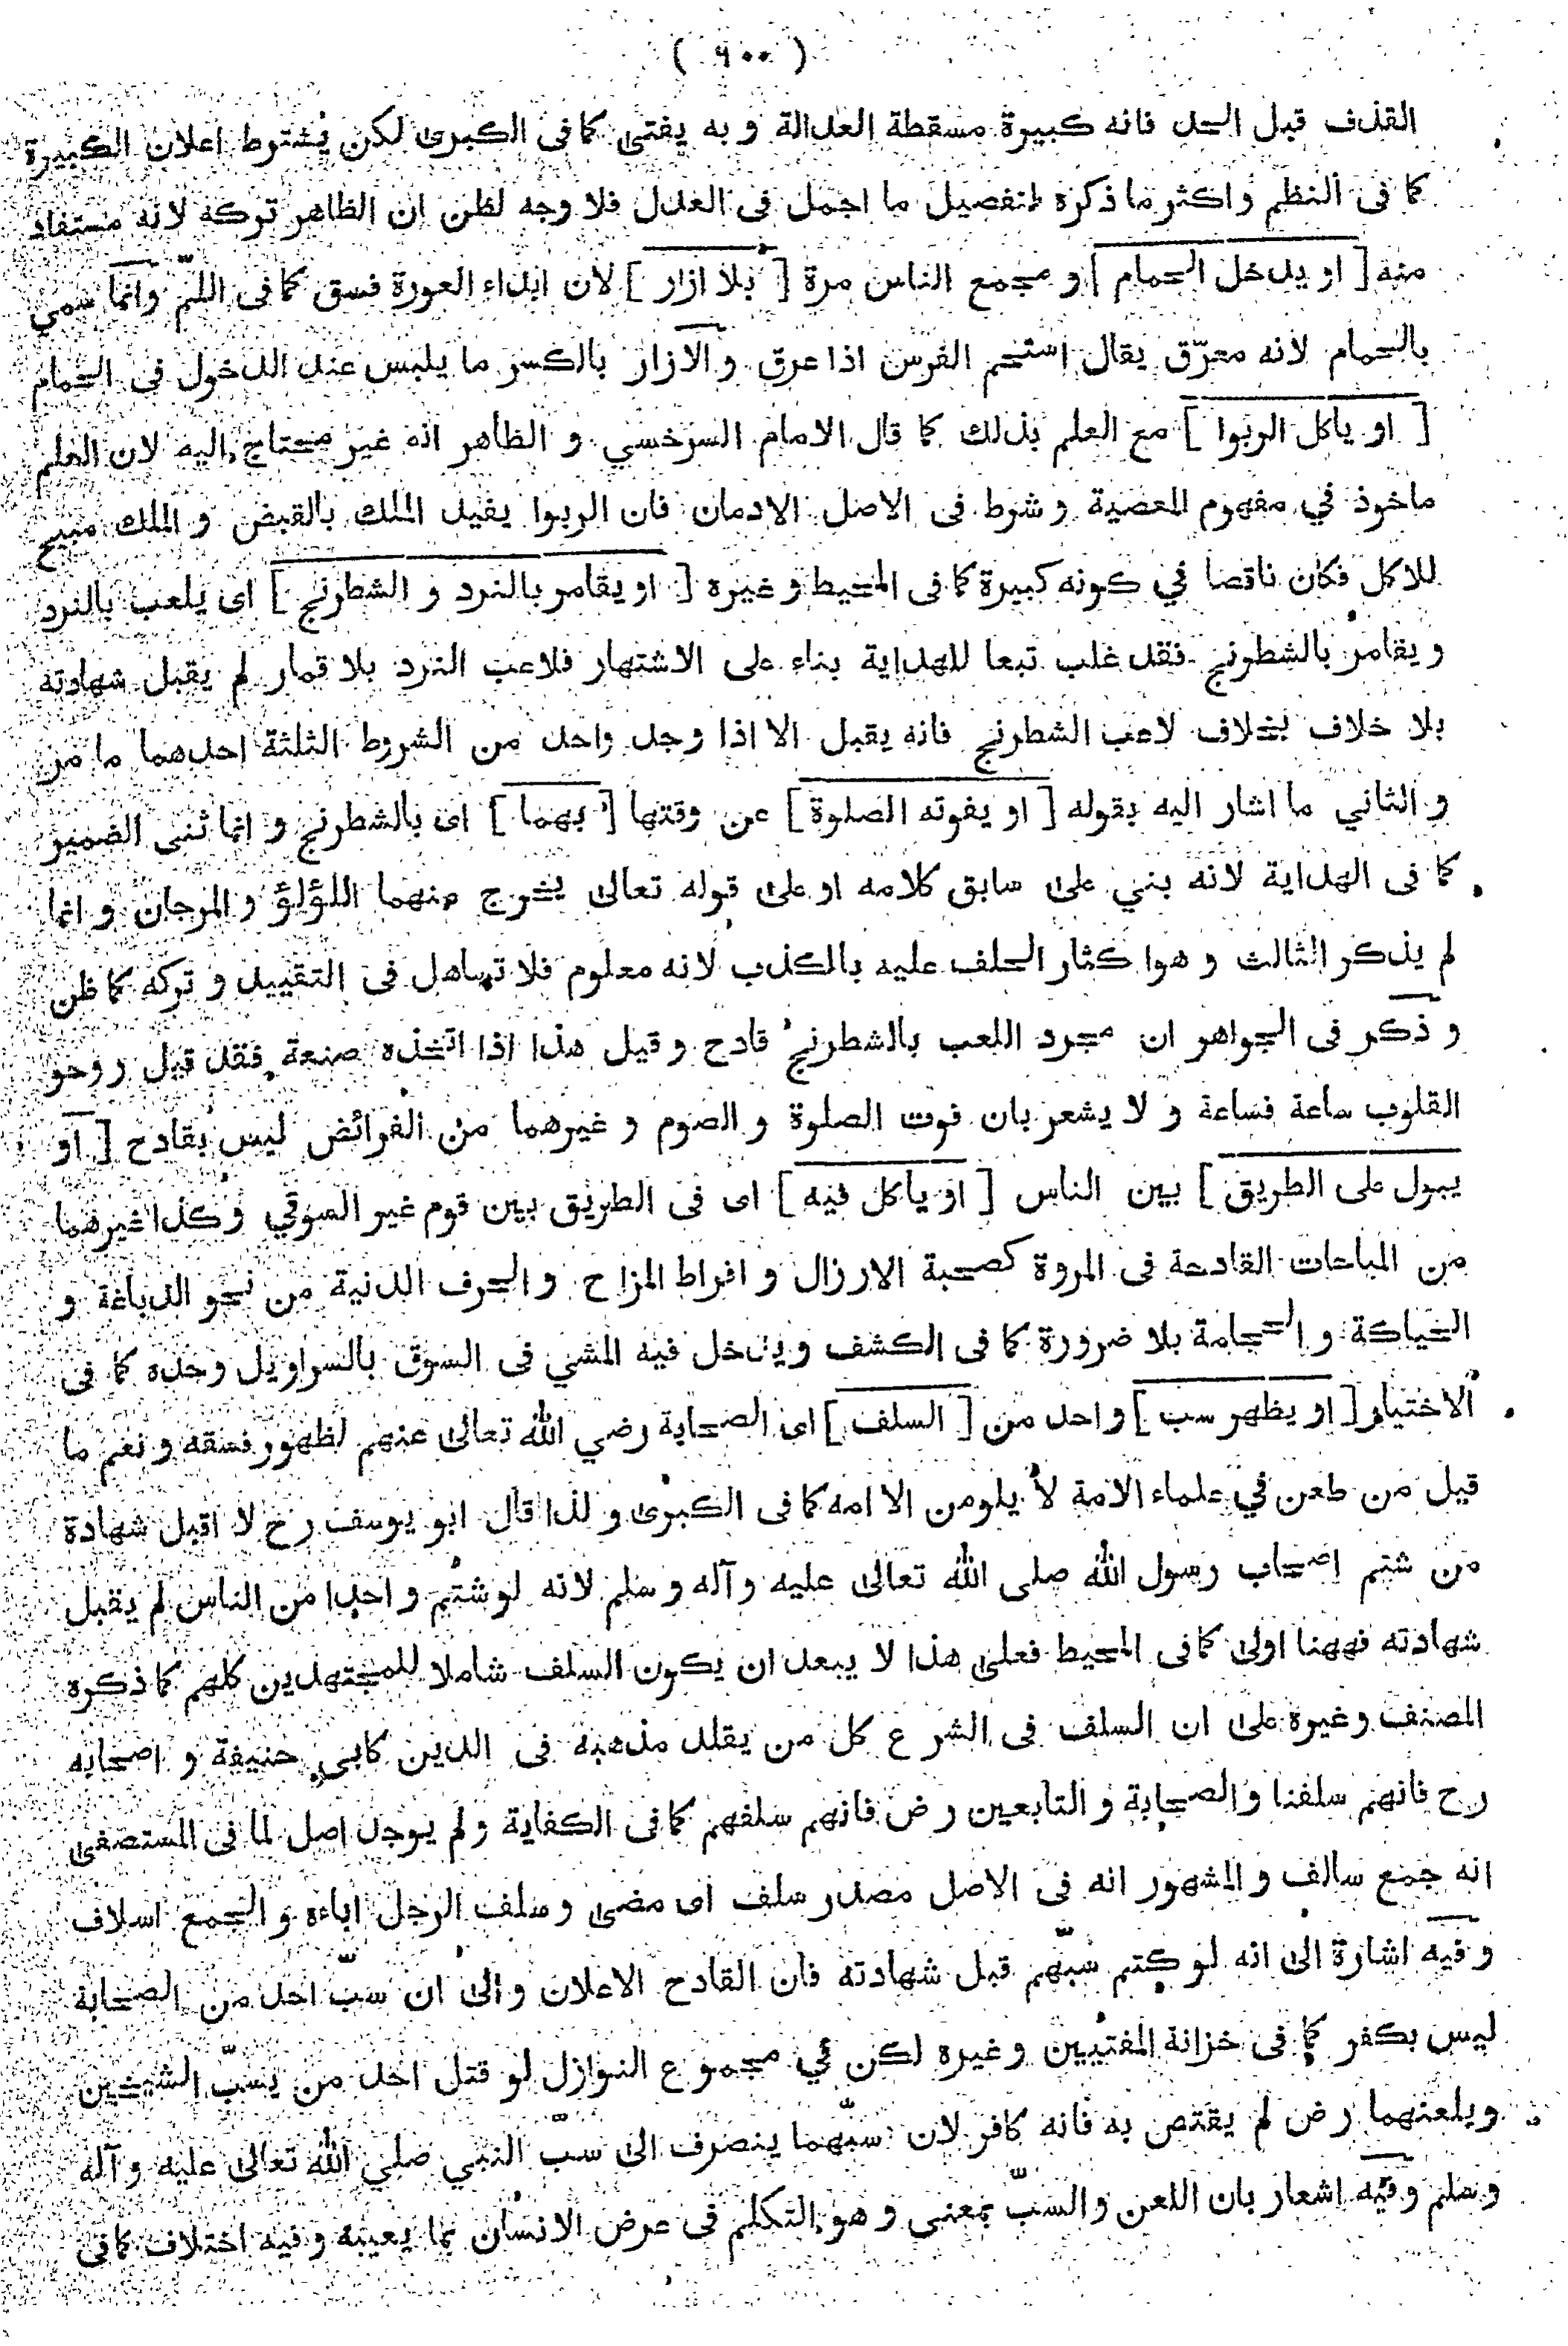 ( ٦٠٠ )
القذف قبل الحد فانه كبيرة مسقطة العدالة و به يفتى كما فى الكبرى لكن يشترط اعلان الكبيرة
كما فى النظم و اكثر ما ذكره لتفصيل ما اجمل فى العدل فلا وجه لظن ان الظاهر تركه لانه مستفاد
منه [ او يدخل الحمام ] و مجمع الناس مرة [ بلا ازار ] لان ابداء العورة فسق كما فى اللمّ وانما سمي
بالحمام لانه معرّق يقال استحم الفرس اذا عرق و الازار بالكسر ما يلبس عند الدخول فى الحمام
[ او ياكل الربوا ] مع العلم بذلك كما قال الامام السرخسي و الظاهر انه غير محتاج اليه لان العلم
ماخوذ في مفهوم المعصية و شرط فى الاصل الادمان فان الربوا يفيد الملك بالقبض و الملك مبيح
للاكل فكان ناقصا في كونه كبيرة كما فى المحيط و غيره [ او يقامر بالنرد و الشطرنج ] اى يلعب بالنرد
و يقامر بالشطرنج فقد غلب تبعا للهداية بناء على الاشتهار فلاعب النرد بلا قمار لم يقبل شهادته
بلا خلاف بخلاف لاعب الشطرنج فانه يقبل الا اذا وجد واحد من الشروط الثلثة احدهما ما مر
و الثاني ما اشار اليه بقوله [ او يفوته الصلوة ] عن وقتها [ بهما ] اى بالشطرنج و انما ثنى الضمير
كما فى الهداية لانه بني على سابق كلامه او على قوله تعالى يخرج منهما اللؤلؤ و المرجان و انما
لم يذكر الثالث و هو اكثار الحلف عليه بالكذب لانه معلوم فلا تساهل فى التقييد و تركه كما ظن
و ذكر فى الجواهر ان مجرد اللعب بالشطرنج قادح و قيل هذا اذا اتخذه صنعة فقد قيل روحو
القلوب ساعة فساعة و لا يشعر بان فوت الصلوة و الصوم و غيرهما من الفرائض ليس بقادح [ او
يبول على الطريق ] بين الناس [ او ياكل فيه ] اى فى الطريق بين قوم غير السوقي و كذا غيرهما
من المباحات القادحة فى المروة كصحبة الارزال و افراط المزاح و الحرف الدنية من نحو الدباغة و
الحياكة و الحجامة بلا ضرورة كما فى الكشف و يدخل فيه المشي فى السوق بالسراويل وحده كما فى
الاختيار [ او يظهر سب ] واحد من [ السلف ] اى الصحابة رضي الله تعالى عنهم لظهور فسقه و نعم ما
قيل من طعن في علماء الامة لا يلومن الا امه كما فى الكبرى و لذا قال ابو يوسف رح لا اقبل شهادة
من شتم اصحاب رسول الله صلى الله تعالى عليه و آله و سلم لانه لو شتم واحدا من الناس لم يقبل
شهادته فههنا اولى كما فى المحيط فعلى هذا لا يبعد ان يكون السلف شاملا للمجتهدين كلهم كما ذكره
المصنف و غيره على ان السلف فى الشرع كل من يقلد مذهبه فى الدين كابي حنيفة و اصحابه
رح فانهم سلفنا و الصحابة و التابعين رض فانهم سلفهم كما فى الكفاية و لم يوجد اصل لما فى المستصفى
انه جمع سالف و المشهور انه فى الاصل مصدر سلف اى مضى و سلف الرجل اباءه و الجمع اسلاف
و فيه اشارة الى انه لو كتم سبّهم قبل شهادته فان القادح الاعلان و الى ان سبّ احد من الصحابة
ليس بكفر كما فى خزانة المفتيين و غيره لكن في مجموع النوازل لو قتل احد من يسبّ الشيخين
و يلعنهما رض لم يقتص به فانه كافر لان سبّهما ينصرف الى سبّ النبي صلي الله تعالى عليه و آله
و سلم و فيه اشعار بان اللعن و السبّ بمعنى و هو التكلم فى عرض الانسان بما يعيبه و فيه اختلاف كما فى